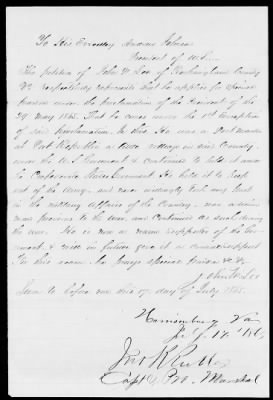 To His Excellency Andrew Johnson
President of U.S.
The petition of John W. Lee of Rockingham County
Va respectfully represents that he applies for special
pardon under the proclamation of the President of the
29 May 1865. That he comes under the 1st exception
of said proclamation, in this: He was a Post Master
at Port Republic a little village in said County,
under the U.S. Government & continued to hold it under
the Confederate States Government. He held it to keep
out of the army, and never willingly took any part
in the military affairs of the Country, was a Union
man previous to the war, and continued as such during
the war. He is now a supporter of the Gov-
ernment, & will in future give it a support
For this reason he prays special pardon &c
John W. Lee
Sworn to before me this 17 day of July 1865.
Harrisonburg Va
July 17th 1865
Capt & Pro. Marshal